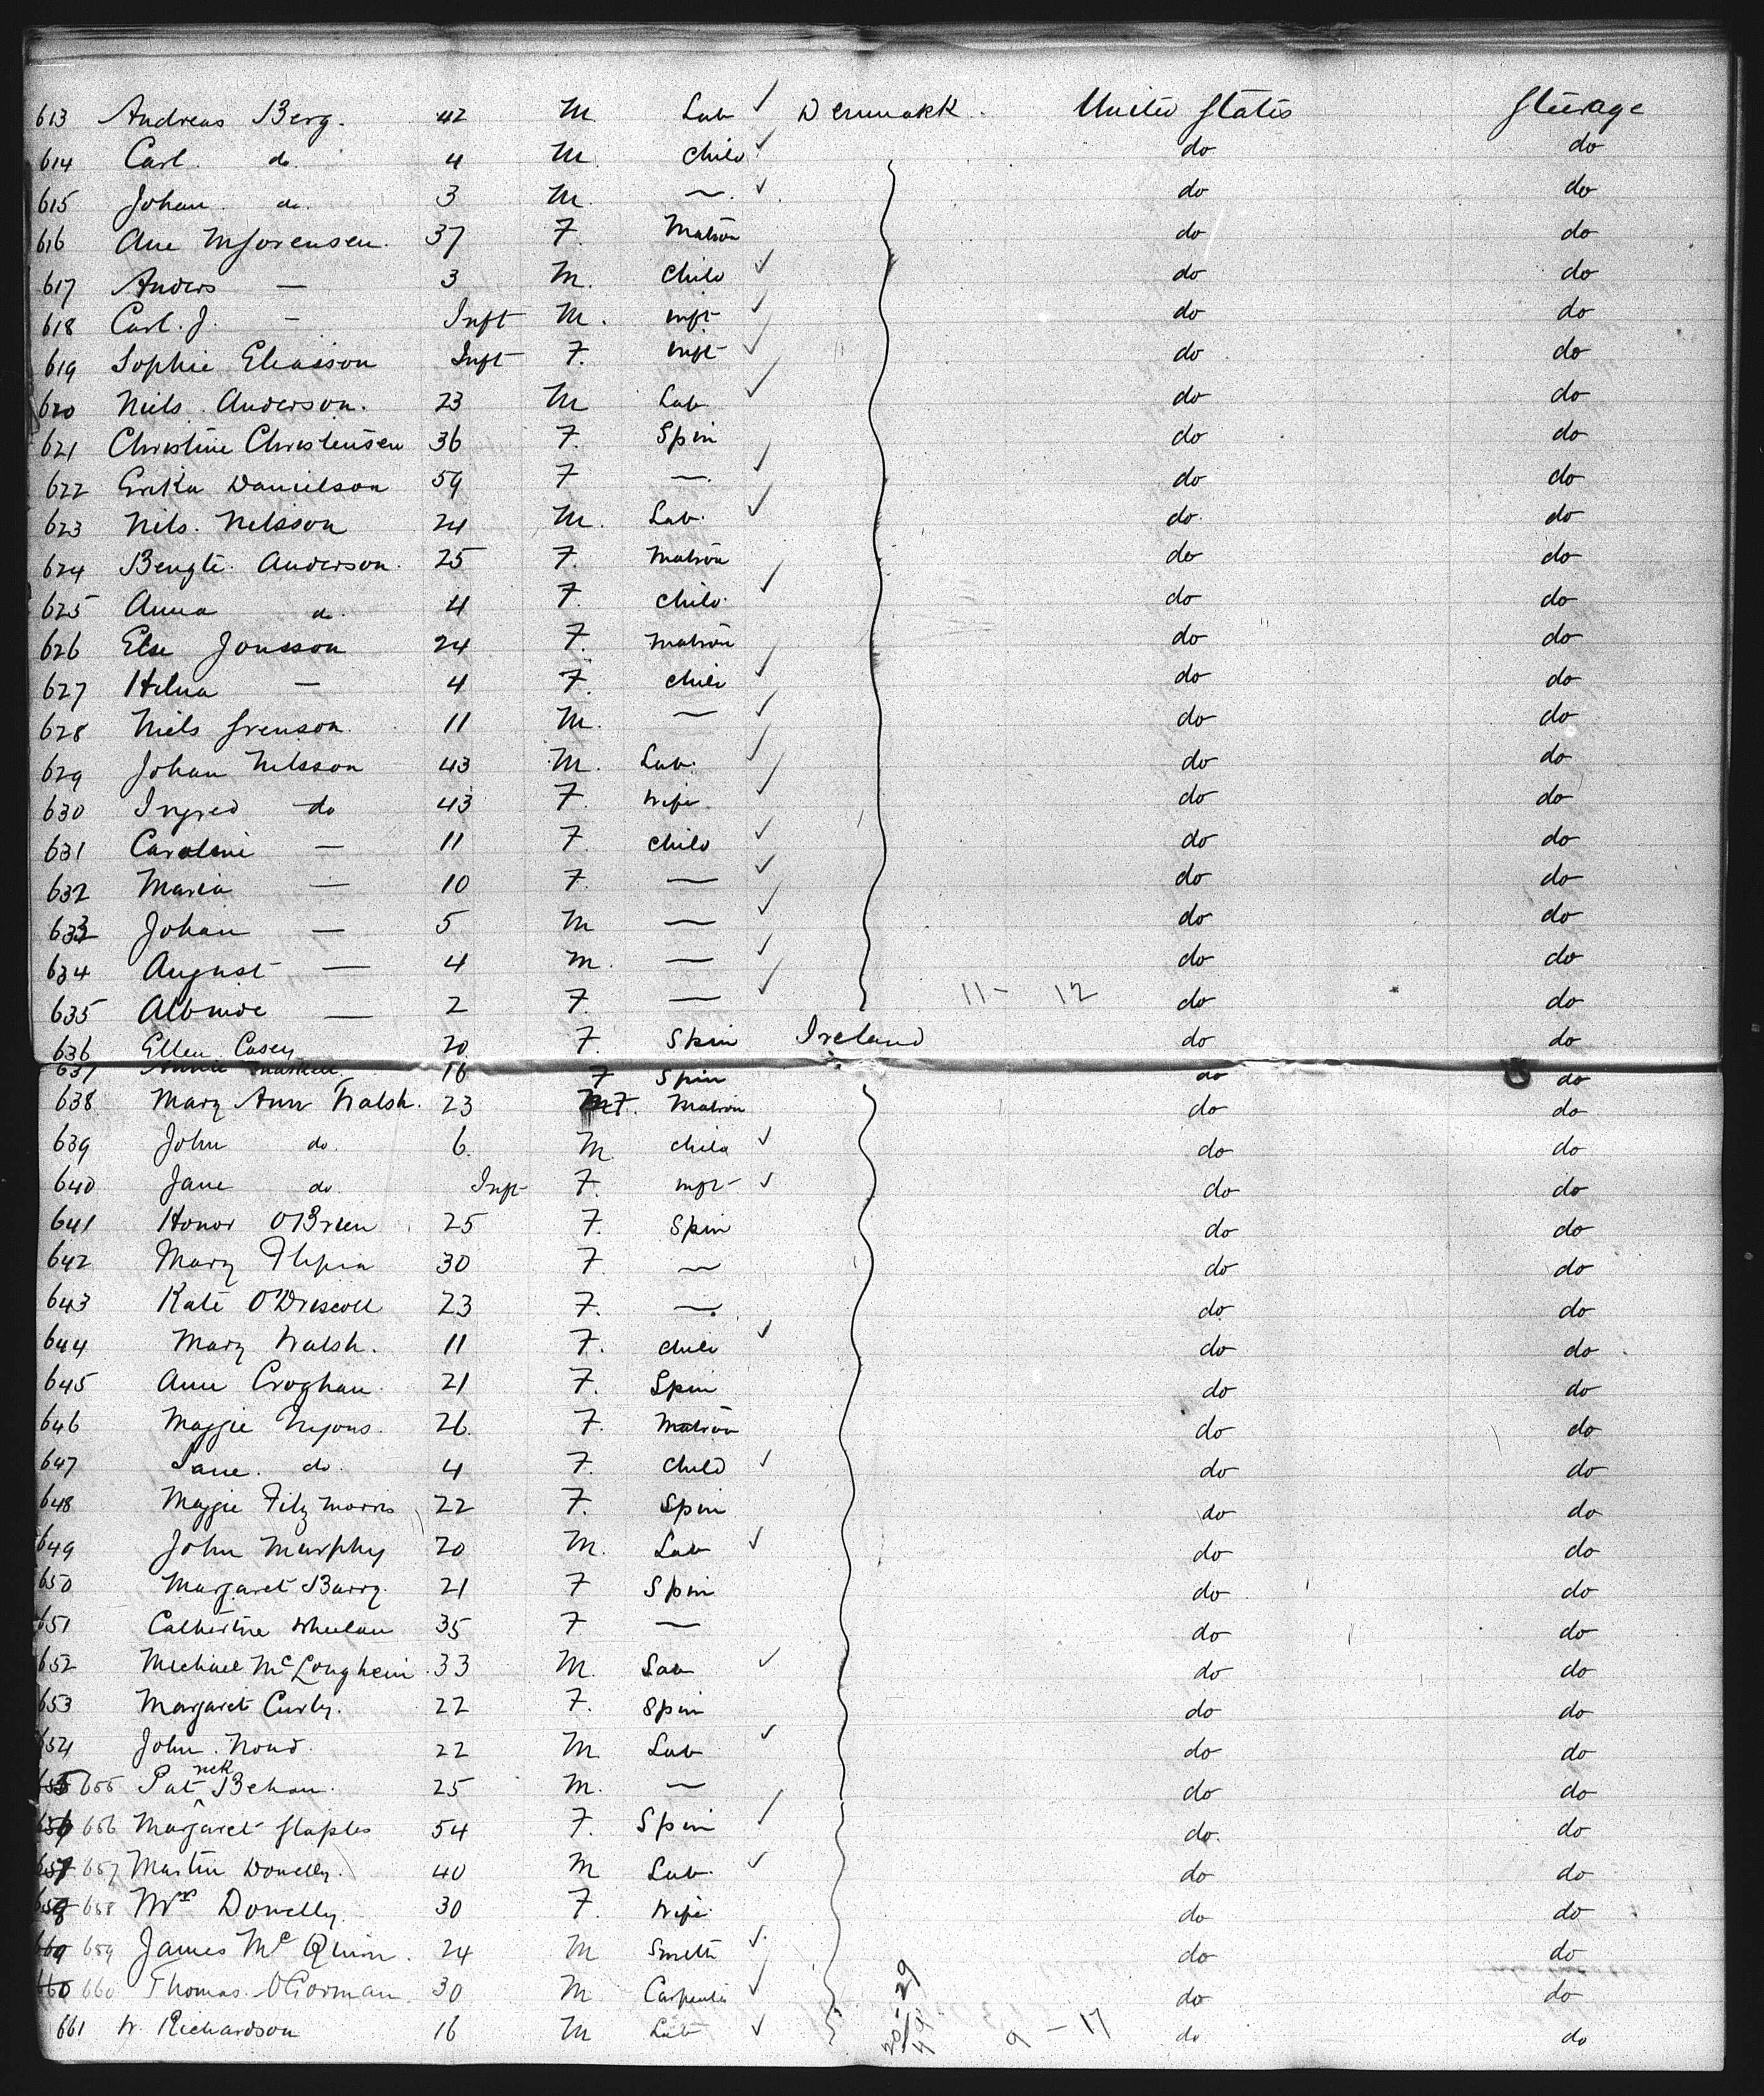 613 Andreas Berg. 42 M Lab ✓ Denmakk. United States Steerage
614 Carl. do 4 M. Child ✓ do do
615 Johan. do. 3 M. — ✓ do do
616 Ane Mjorensen. 37 F. Matron do do
617 Anders — 3 M. Child ✓ do do
618 Carl. J. — Inft M. inft ✓ do do
619 Sophie Eliasson Inft F. inft ✓ do do
620 Niels. Anderson. 23 M Lab ✓ do do
621 Christine Christensen 36 F. Spin do do
622 Erika Danielson 59 F —. ✓ do do
623 Nils. Nilsson 24 M. Lab. ✓ do do
624 Bengte. Anderson. 25 F. Matron do do
625 Anna do. 4 F. Child. ✓ do do
626 Else Jonsson 24 F. Matron do do
627 Hilma — 4 F. Child ✓ do do
628 Niels Svenson. 11 M. — ✓ do do
629 Johan Nilsson 43 M. Lab. ✓ do do
630 Ingred do 43 F. Wife. ✓ do do
631 Caroline — 11 F. Child ✓ do do
632 Maria — 10 F. — ✓ do do
633 Johan — 5 M — ✓ do do
634 August — 4 M. — ✓ do do
635 — 2 F. — ✓ 11 - 12 do do
636 Ellen Casey 20 F. Spin Ireland do do
637 Annie 16 F Spin do do
638 Mary Ann Walsh. 23 F. Matron do do
639 John do. 6. M. Child ✓ do do
640 Jane do. Inft F. inft ✓ do do
641 Honor O'Brien 25 F. Spin do do
642 Mary 30 F — do do
643 Kate O'Driscoll 23 F. —. do do
644 Mary Walsh. 11 F. Child ✓ do do
645 Ann Croghan. 21 F. Spin do do
646 Maggie 26. F. Matron do do
647 do. 4 F. Child ✓ do do
648 Maggie Fitz morris 22 F. Spin do do
649 John Murphy 20 M. Lab ✓ do do
650 Margaret Barry. 21 F Spin do do
651 Catherine Wheelan 35 F — do do
652 Michael McLoughein. 33 M. Lab ✓ do do
653 Margaret Curly. 22 F. Spin do do
654 John. 22 M Lab ✓ do do
655 655 Patrick Behan. 25 M. — do do
656 Margaret Staples 54 F. Spin ✓ do do
657 Martin Donelly. 40 M Lab. ✓ do do
658 Mrs Donelly. 30 F. Wife. do do
659 James McQuinn. 24 M Smith ✓ do do
660 660 Thomas. O'Gorman. 30 M. Carpenter ✓ do do
661 W. Richardson 16 M Lab ✓ 20 - 29 49 9 - 17 do do